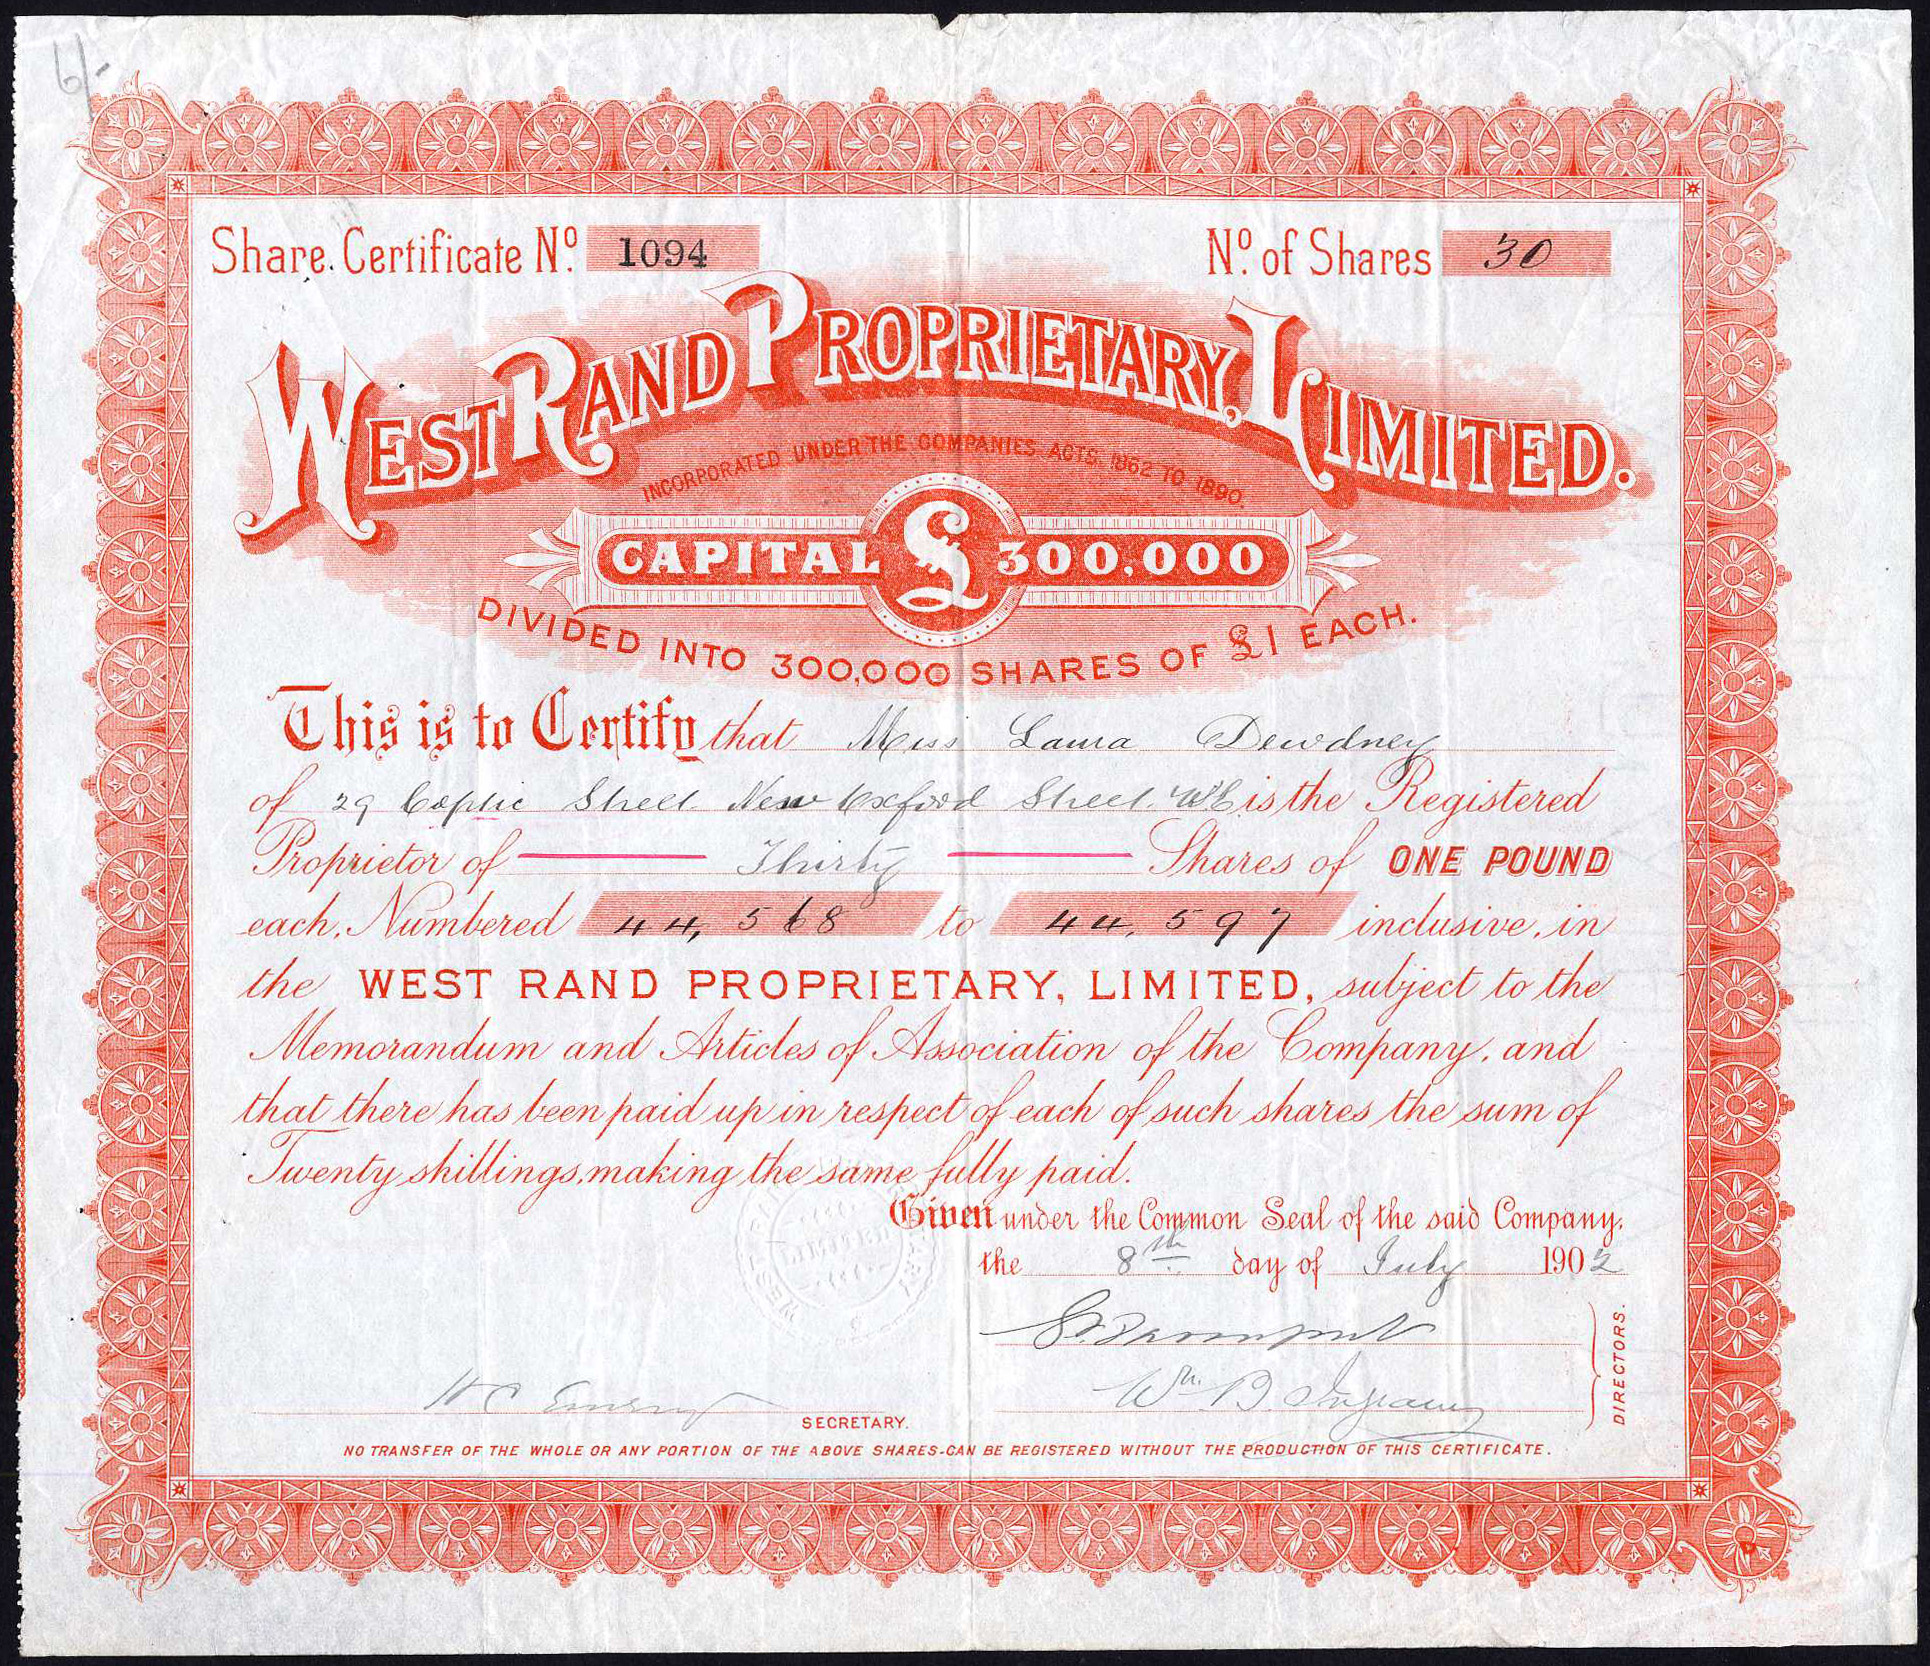 6/-
Share Certificate Nº. 1094
Nº. of Shares 30
WEST RAND PROPRIETARY, LIMITED.
INCORPORATED UNDER THE COMPANIES ACTS, 1862 TO 1890.
CAPITAL £ 300,000
DIVIDED INTO 300,000 SHARES OF £1 EACH.
This is to Certify that Miss Laura Dewdney
of 29 Coptic Street New Oxford Street. WC is the Registered
Proprietor of Thirty Shares of ONE POUND
each, Numbered 44,568 to 44,597 inclusive, in
the WEST RAND PROPRIETARY, LIMITED, subject to the
Memorandum and Articles of Association of the Company, and
that there has been paid up in respect of each of such shares the sum of
Twenty shillings, making the same fully paid.
Given under the Common Seal of the said Company,
the 8th day of July 1902
Wm. B. Ingram
DIRECTORS.
SECRETARY.
NO TRANSFER OF THE WHOLE OR ANY PORTION OF THE ABOVE SHARES CAN BE REGISTERED WITHOUT THE PRODUCTION OF THIS CERTIFICATE.